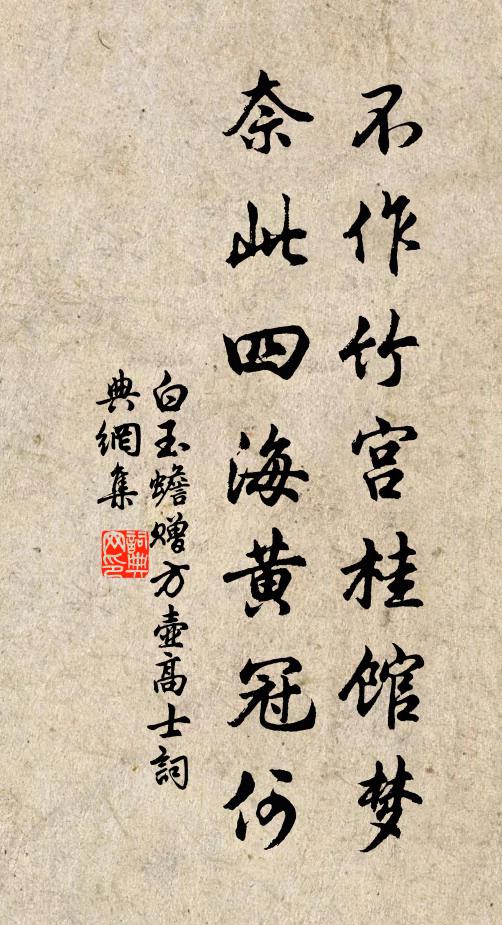 不作竹宫桂馆梦
奈此四海黄冠何
白玉蟾赠方壶高士詞
典網集
詞典
网印